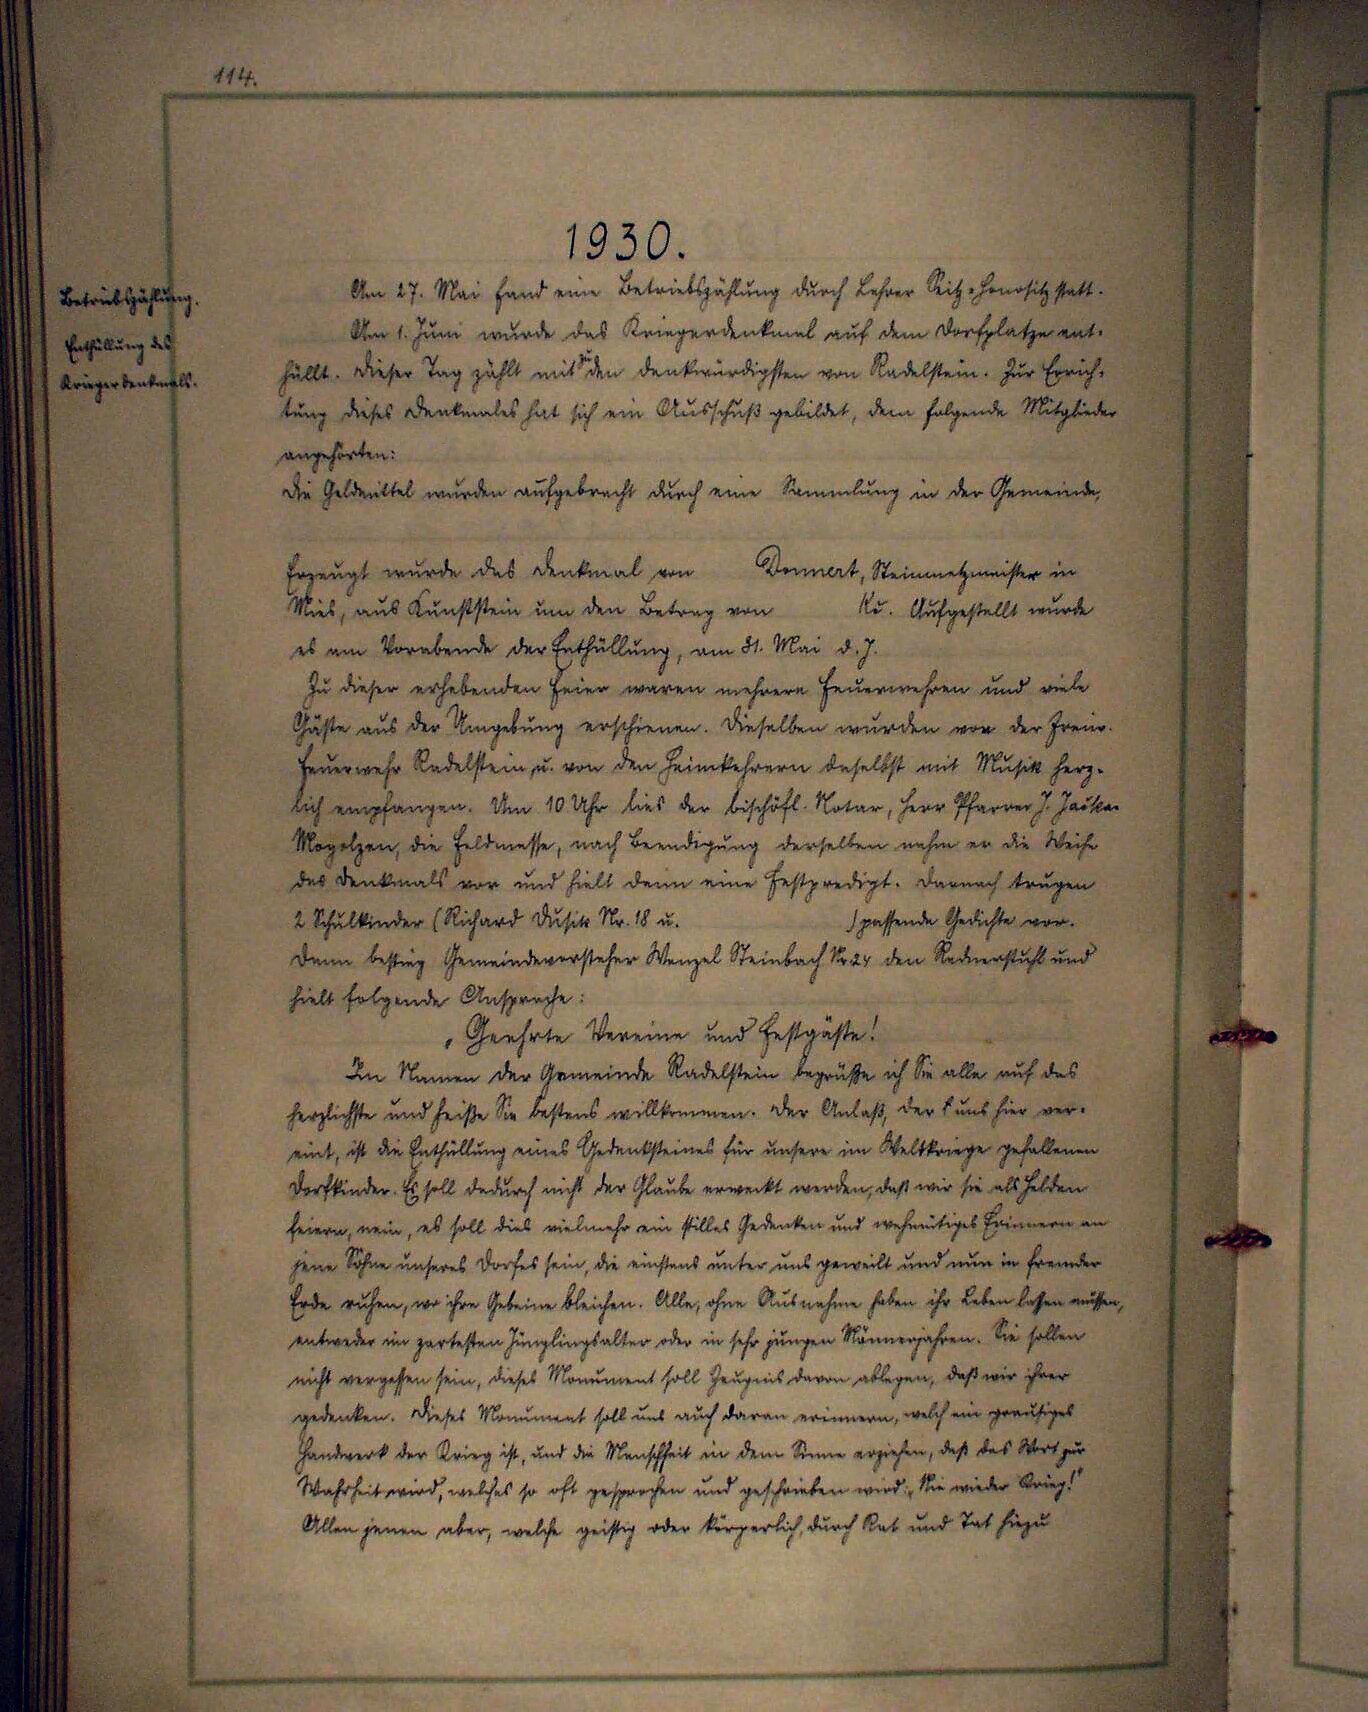 114.
1930.
Betriebszählung.
Am 27. Mai fand eine Betriebszählung durch Lehrer Seitz-Honositz statt.
Enthüllung des
Kriegerdenkmals.
Am 1. Juni wurde das Kriegerdenkmal auf dem Dorfplatze ent-
hüllt. Dieser Tag zählt mit zu den denkwürdigsten von Radelstein. Zur Errich-
tung dieses Denkmales hat sich ein Ausschuß gebildet, dem folgende Mitglieder
angehörten:
Die Geldmittel wurden aufgebracht durch eine Sammlung in der Gemeinde,
Erzeugt wurde das Denkmal von Donnert, Steinmetzmeister in
Mies, aus Kunststein um den Betrag von Kč. Aufgestellt wurde
es am Vorabende der Enthüllung, am 31. Mai d. J.
Zu dieser erhebenden Feier waren mehrere Feuerwehren und viele
Gäste aus der Umgebung erschienen. Dieselben wurden von der Freiw.
Feuerwehr Radelstein u. von den Heimkehrern daselbst mit Musik herz-
lich empfangen. Um 10 Uhr lies der bischöfl. Notar, Herr Pfarrer J.
Mogolzen, die Feldmesse, nach Beendigung derselben nahm er die Weihe
des Denkmals vor und hielt dann eine Festpredigt. Darnach trugen
2 Schulkinder (Richard Dusik Nr. 18 u. ) passende Gedichte vor.
Dann bestieg Gemeindevorsteher Wenzel Steinbach Nr. 24 den Rednerstuhl und
hielt folgende Ansprache:
„Geehrte Vereine und Festgäste!
Im Namen der Gemeinde Radelstein begrüße ich Sie alle auf das
herzlichste und heiße Sie bestens willkommen. Der Anlaß, der uns hier ver-
eint, ist die Enthüllung eines Gedenksteines für unsere im Weltkriege gefallenen
Dorfkinder. Es soll dadurch nicht der Glaube erweckt werden, daß wir sie als Helden
feiern, nein, es soll dies vielmehr ein stilles Gedenken und wehmütiges Erinnern an
jene Söhne unseres Dorfes sein, die einstens unter uns geweilt und nun in fremder
Erde ruhen, wo ihre Gebeine bleichen. Alle, ohne Ausnahme haben ihr Leben lassen müssen,
entweder im zartesten Jünglingsalter oder in sehr jungen Männerjahren. Sie sollen
nicht vergessen sein, dieses Monument soll Zeugnis davon ablegen, daß wir ihrer
gedenken. Dieses Monument soll uns auch daran erinnern, welch ein grausiges
Handwerk der Krieg ist, und die Menschheit in dem Sinne erziehen, daß das Wort zur
Wahrheit wird, welches so oft gesprochen und geschrieben wird: „Nie wieder Krieg!"
Allen jenen aber, welche geistig oder körperlich, durch Rat und Tat hiezu